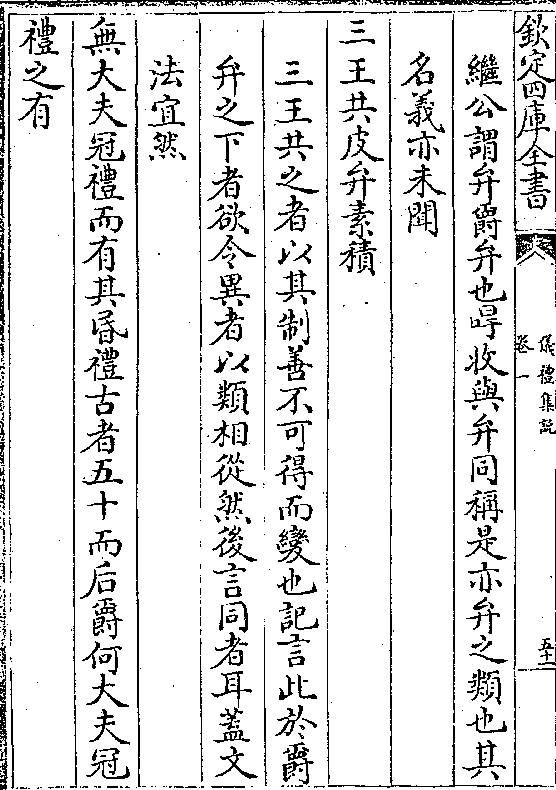 欽定四庫全書
儀禮集説
卷一
五十一
繼公謂弁爵弁也冔收與弁同稱是亦弁之類也其
名義亦未聞
三王共皮弁素積
三王共之者以其制善不可得而變也記言此於爵
弁之下者欲令異者以類相從然後言同者耳蓋文
法宜然
無大夫冠禮而有其昬禮古者五十而后爵何大夫冠
禮之有